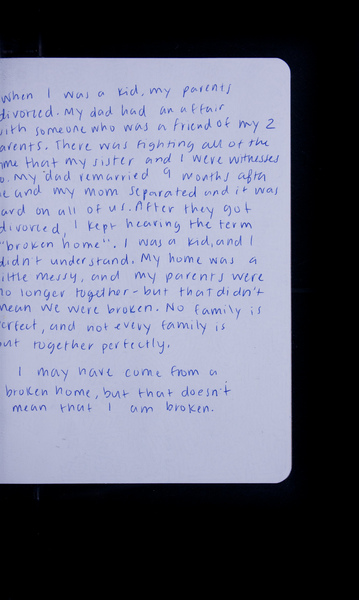 when I was a kid, my parents
divorced. My dad had an affair
with someone who was a friend of my 2
parents. There was fighting all of the
time that my sister and I were witnesses
to. My dad remarried 9 months after
he and my mom separated and it was
hard on all of us. After they got
divorced, I kept hearing the term
"broken home". I was a kid, and I
didn't understand. My home was a
little messy, and my parents were
no longer together - but that didn't
mean we were broken. No family is
perfect, and not every family is
put together perfectly.
I may have come from a
broken home, but that doesn't
mean that I am broken.